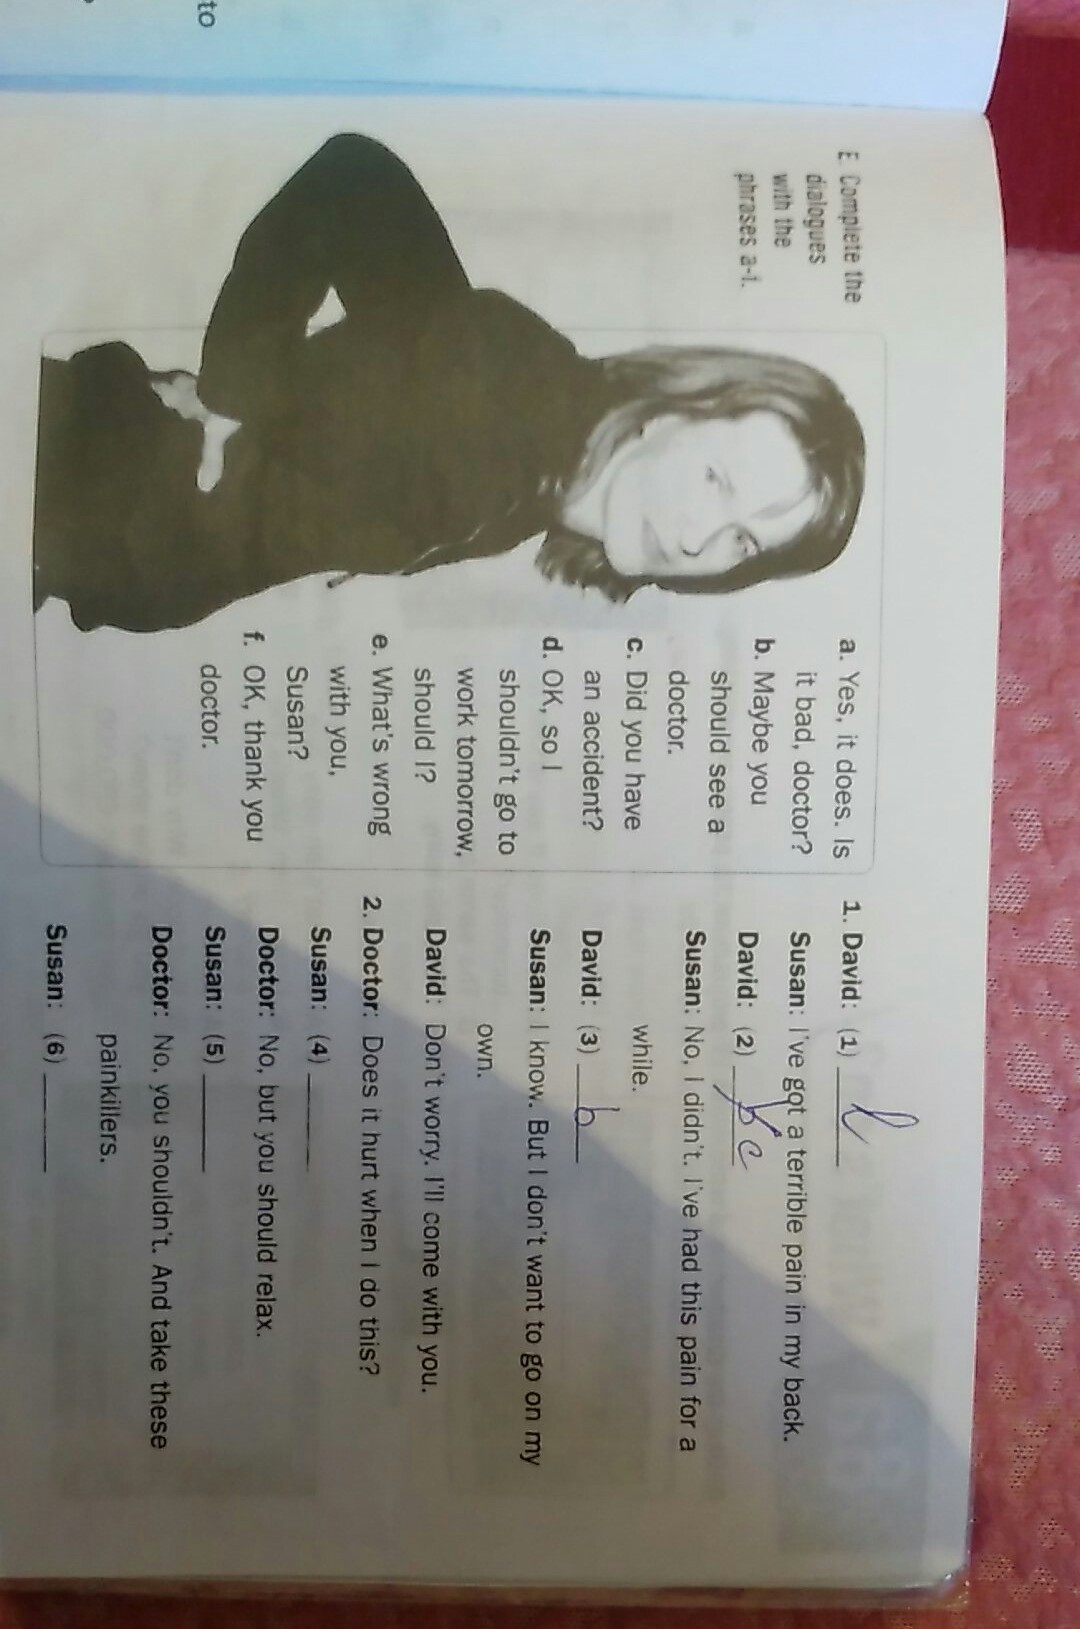 E. Complete the
dialogues
with the
phrases a-f.
a. Yes, it does. Is
it bad, doctor?
b. Maybe you
should see a
doctor.
c. Did you have
an accident?
d. OK, so I
shouldn't go to
work tomorrow,
should I?
e. What's wrong
with you,
Susan?
f. OK, thank you
doctor.
1. David: (1)
Susan: I've got a terrible pain in my back.
David: (2) c
Susan: No, I didn't. I've had this pain for a
while.
David: (3) b
Susan: I know. But I don't want to go on my
own.
David: Don't worry. I'll come with you.
2. Doctor: Does it hurt when I do this?
Susan: (4)
Doctor: No, but you should relax.
Susan: (5)
Doctor: No, you shouldn't. And take these
painkillers.
Susan: (6)
to